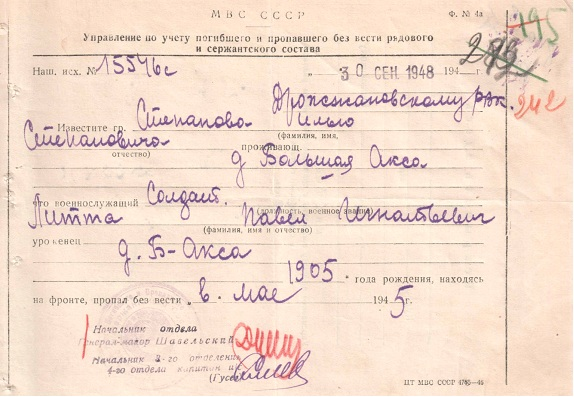 МВС СССР
Ф. № 4а
195
Управление по учету погибшего и пропавшего без вести рядового
и сержантского состава
Наш. исх. № 15546с
„ 30 СЕН. 1948 194 г.
Дрожжановскому рвк.
242
Известите гр. Степанова Илью
(фамилия, имя,
Степановича
отчество)
проживающ.
д Большая Акса
что военнослужащий Солдат.
(должность, военное звание)
Литта Павел Игнатьевич
(фамилия, имя и отчество)
уроженец д. Б-Акса
1905 года рождения, находясь
на фронте, пропал без вести „ в мае 1945 г.
Начальник отдела
Генерал-майор Шавельский
Начальник 2-го отделения
4-го отдела капитан
(Гусев)
ЦТ МВС СССР